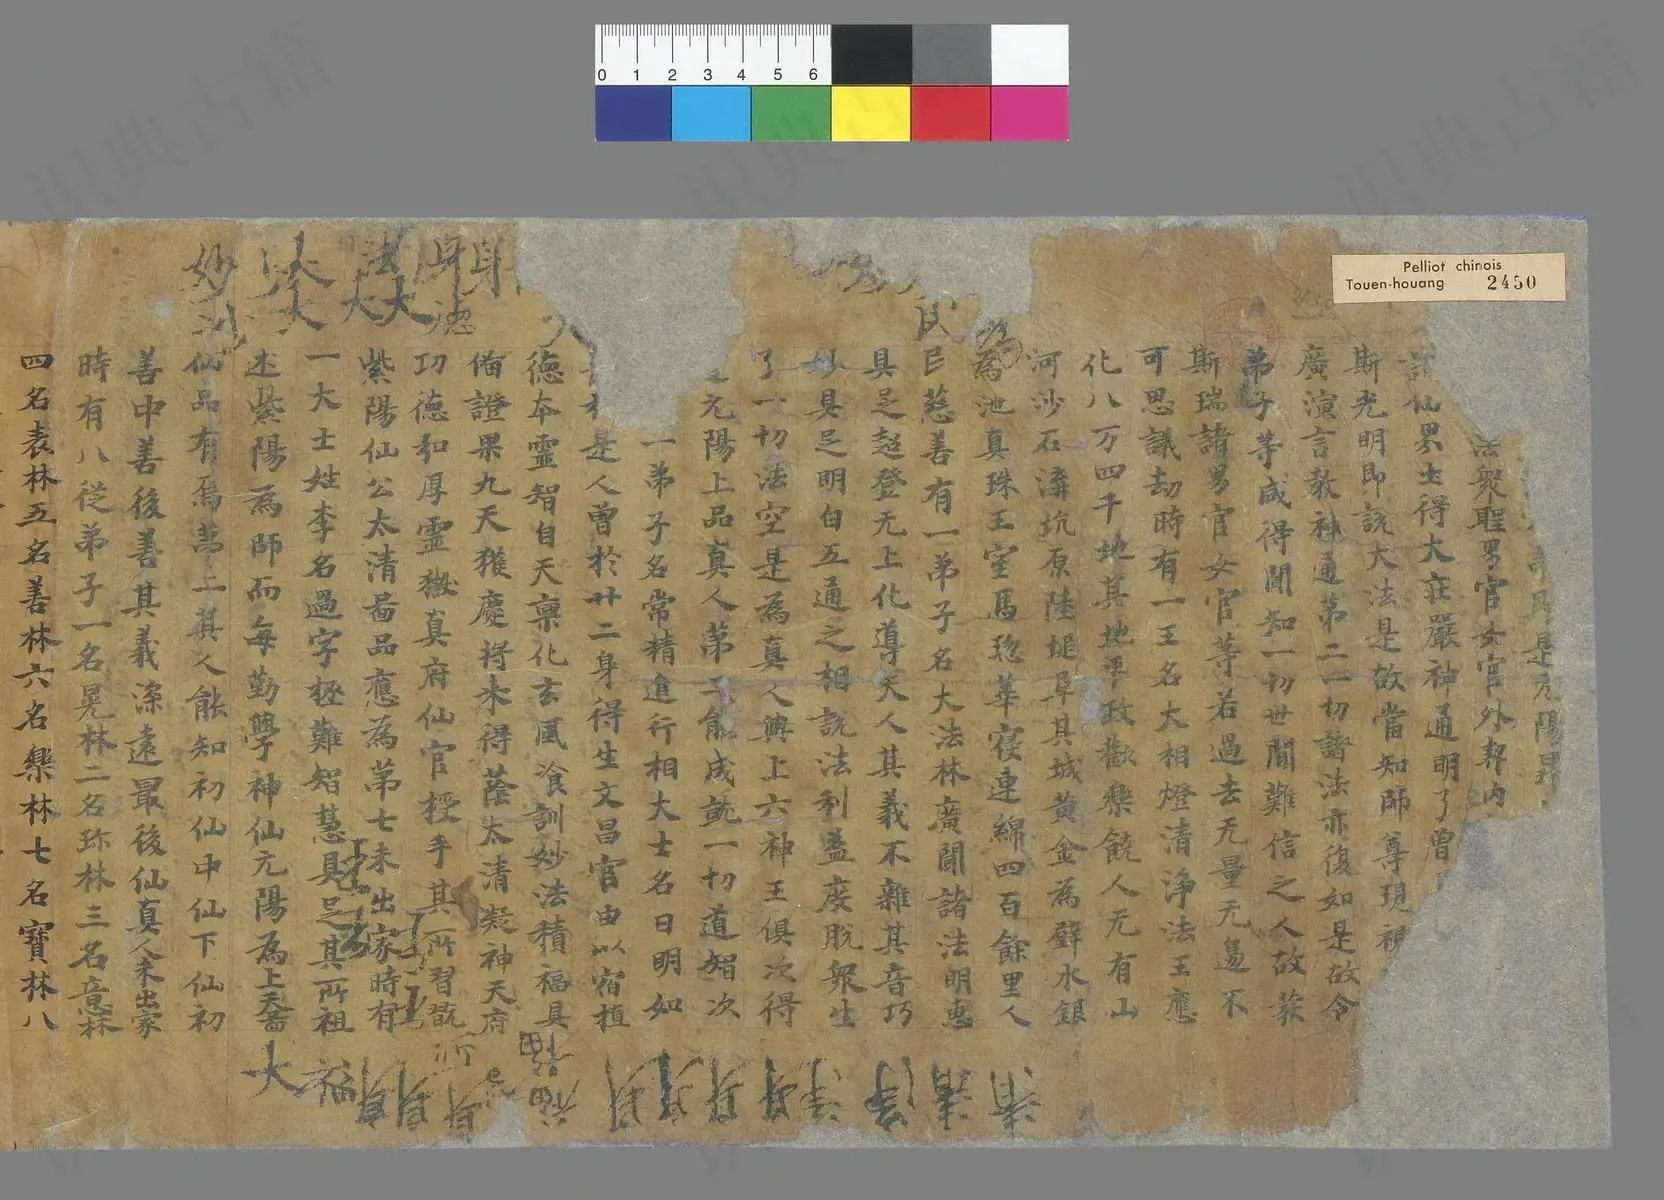 Pelliot chinois
Touen-houang 2450
0 1 2 3 4 5 6
是元陽昇
法衆聖男官女官外輔内
仙界士得大莊嚴神通明了曾
斯光明即說大法是故當知師尊現
廣演言教神通第二一切諸法亦復如是故令
弟子等咸得聞知一切世間難信之人故發
斯瑞諸男官女官等若過去无量无邊不
可思議劫時有一王名大相燈清淨法王應
化八万四千地其地平政歡樂饒人无有山
河沙石溝坑原陸埠阜其城黄金為壁水銀
為池真珠玉室馬瑙華寢連綿四百餘里人
民慈善有一弟子名大法林廣聞諸法明惠
具足超登无上化導天人其義不雜其音巧
妙具足明白五通之相說法利益度脫衆生
了一切法空是為真人與上六神王俱次得
元陽上品真人第二能成就一切道智次
一弟子名常精進行相大士名日明如
是人曾於廿二身得生文昌官由以宿植
德本靈智自天禀化玄風飡訓妙法積福具
俻證果九天獲慶將来得蔭太清凝神天府
功德和厚靈嶽真府仙官授手其所習既
紫陽仙公太清啚品應為第七未出家時有
一大士姓李名過字極難智慧具足其所祖
述紫陽為師而每勤學神仙元陽為上天
仙品有焉第二其人能知初仙中仙下仙初
善中善後善其義深遠最後仙真人未出家
時有八從弟子一名晃林二名珎林三名意林
四名表林五名善林六名樂林七名寶林八
妙 大 法 身 身
大 大 大
民
大 福 身 身 身 所 福 身 身 身 身 淨 淨 清 清
識典古籍